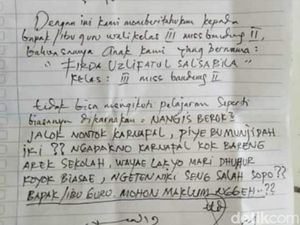 Dengan ini kami memberitahukan kepada
bapak/ibu guru wali kelas III miss bandung II,
bahwasannya anak kami yang bernama:
" FIRDA UZLIFATUL SALSABILA "
kelas: III miss bandung II
tidak bisa mengikuti pelajaran seperti
biasanya dikarnakan = NANGIS BEROK2
JALOK NONTOK KARNAFAL, PIYE BU MUNJIDAH
IKI ?? NGADAKNO KARNAFAL KOK BARENG
AREK SEKOLAH, WAYAE LAK YO MARI DHUHUR
KOYOK BIASAE, NGETEN NIKI SENG SALAH SOPO ??
BAPAK/IBU GURU. MOHON MAKLUM NGGEH..??
detikcom